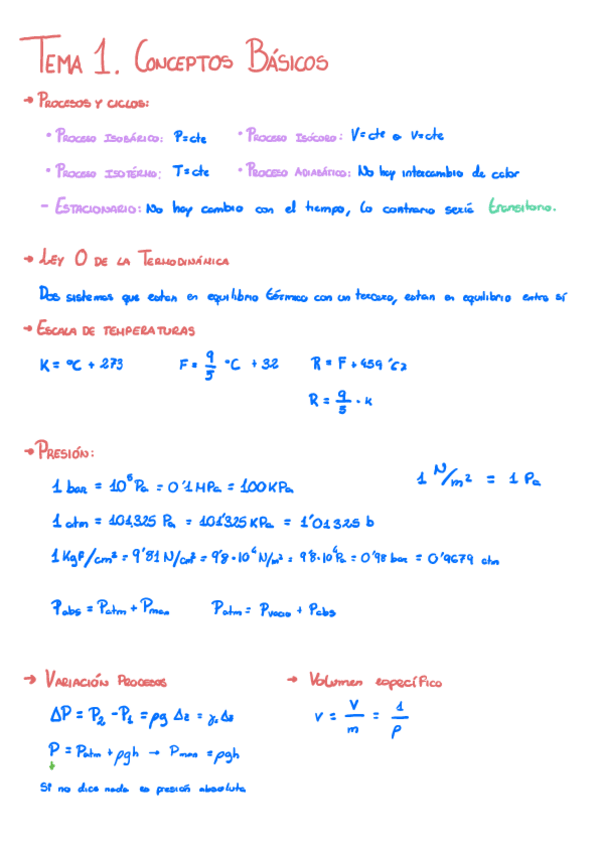 TEMA 1. CONCEPTOS BÁSICOS
→ PROCESOS Y CICLOS:
• PROCESO ISOBÁRICO: P=cte • PROCESO ISÓCORO: V=cte o v=cte
• PROCESO ISOTÉRMO: T=cte • PROCESO ADIABÁTICO: No hay intercambio de calor
- ESTACIONARIO: No hay cambio con el tiempo, lo contrario sería transitorio.
→ LEY 0 DE LA TERMODINÁNICA
Dos sistemas que estan en equilibrio térmico con un tercero, estan en equilibrio entre sí
→ ESCALA DE TEMPERATURAS
K = ºC + 273 F = 9/5 ºC + 32 R = F + 459'62
R = 9/5 · K
→ PRESIÓN:
1 N/m² = 1 Pa
1 bar = 10⁵ Pa = 0'1 MPa = 100 KPa
1 atm = 101.325 Pa = 101'325 KPa = 1'01325 b
1 Kgf/cm² = 9'81 N/cm² = 9'8·10⁴ N/m² = 9'8·10⁴ Pa = 0'98 bar = 0'9679 atm
Pabs = Patm + Pman Patm = Pvacio + Pabs
→ VARIACIÓN PROCESOS → Volumen específico
ΔP = P₂ - P₁ = ρg Δz = γ·Δz v = V/m = 1/ρ
P = Patm + ρgh → Pman = ρgh
Si no dice nada es presión absoluta